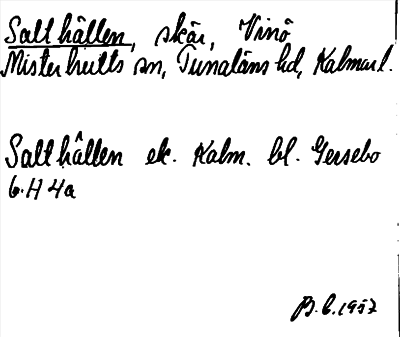 Salthällen, skär, Vinö
Misterhults sn, Tunaläns hd, Kalmar l.
Salthällen ek. Kalm. bl. Gersebo
6 H 4a
B.C. 1957